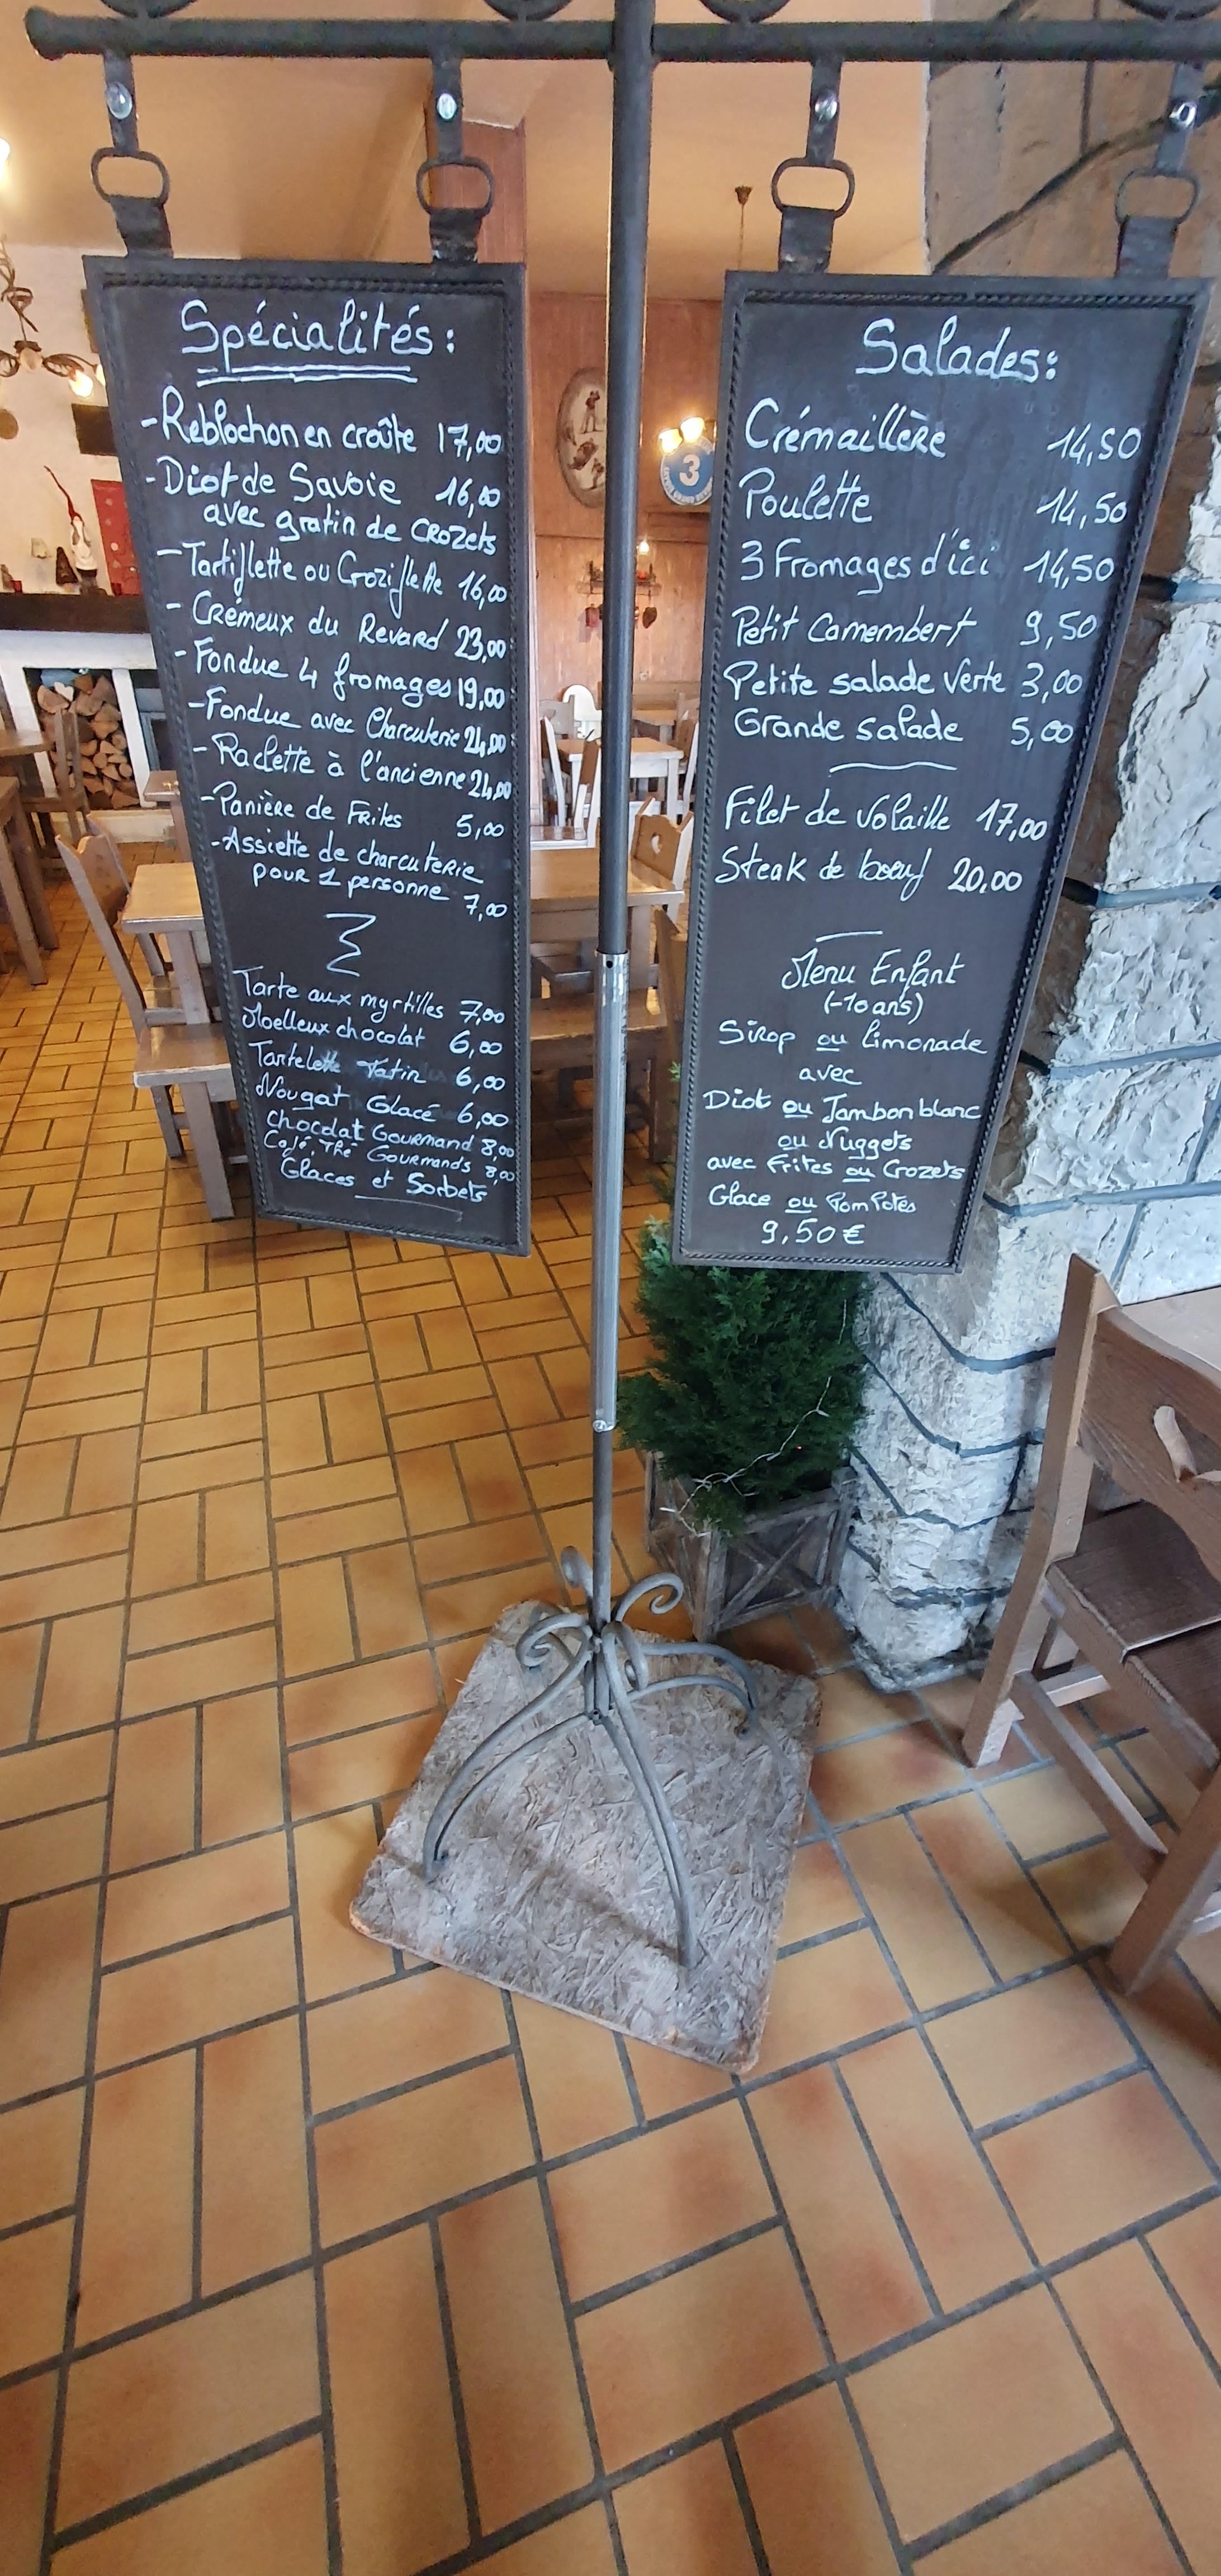 Spécialités:
- Reblochon en croûte 17,00
- Diot de Savoie 16,00
avec gratin de crozets
- Tartiflette ou Croziflette 16,00
- Crémeux du Revard 23,00
- Fondue 4 fromages 19,00
- Fondue avec Charcuterie 24,00
- Raclette à l'ancienne 24,00
- Panière de Frites 5,00
- Assiette de charcuterie
pour 1 personne 7,00
Tarte aux myrtilles 7,00
Moelleux chocolat 6,00
Tartelette Tatin 6,00
Nougat Glacé 6,00
Chocolat Gourmand 8,00
Café, Thé Gourmands 8,00
Glaces et Sorbets
Salades:
Crémaillère 14,50
Poulette 14,50
3 Fromages d'ici 14,50
Petit Camembert 9,50
Petite salade verte 3,00
Grande salade 5,00
Filet de volaille 17,00
Steak de boeuf 20,00
Menu Enfant
(-10 ans)
Sirop ou limonade
avec
Diot ou Jambon blanc
ou Nuggets
avec Frites ou Crozets
Glace ou Pom'Potes
9,50 €
3